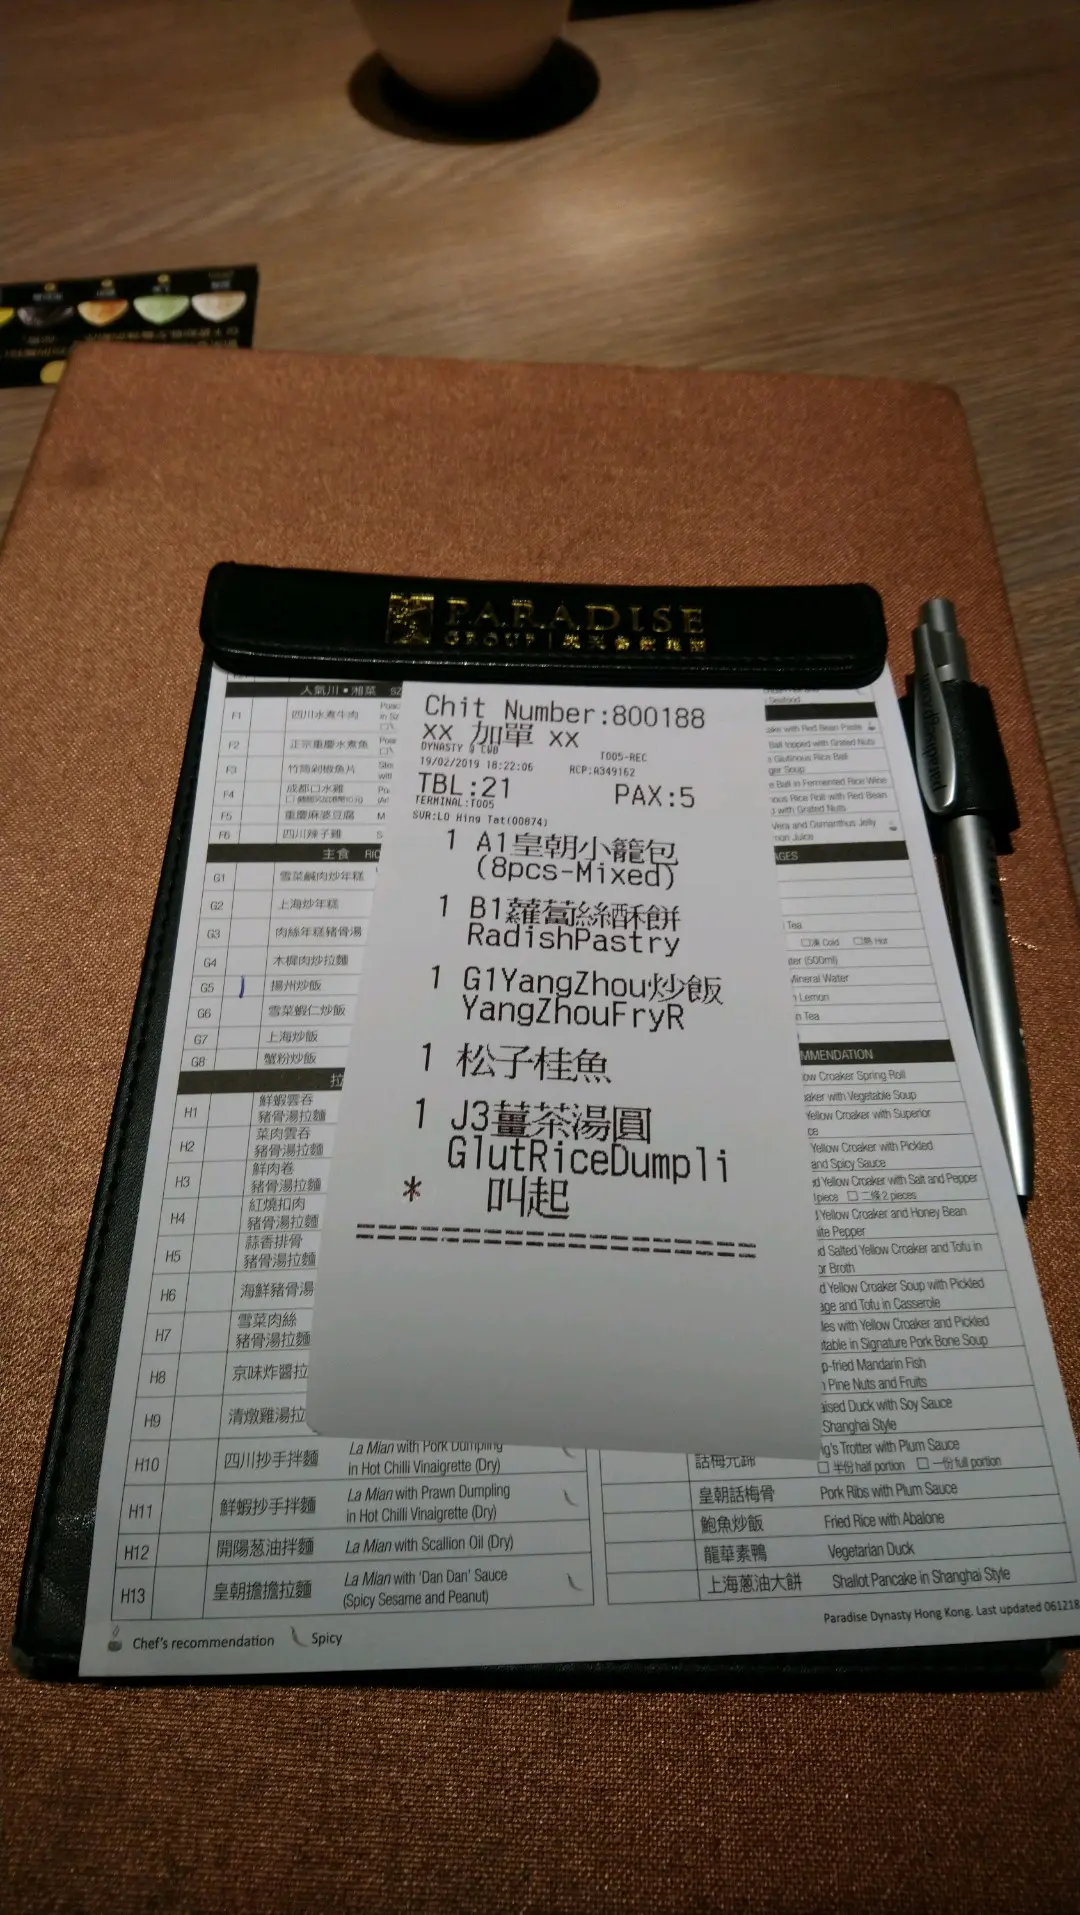 PARADISE
GROUP
Chit Number:800188
xx 加單 xx
DYNASTY @ CWB
T005-REC
19/02/2019 18:22:06
RCP:A349162
TBL:21
PAX:5
TERMINAL:T005
SVR:LO Hing Tat(00874)
1 A1皇朝小籠包
(8pcs-Mixed)
1 B1蘿蔔絲酥餅
RadishPastry
1 G1YangZhou炒飯
YangZhouFryR
1 松子桂魚
1 J3薑茶湯圓
GlutRiceDumpli
* 叫起
人氣川•湘菜 SZ
F1 四川水煮牛肉
F2 正宗重慶水煮魚
F3 竹筒剁椒魚片
F4 成都口水雞
F5 重慶麻婆豆腐
F6 四川辣子雞
主食 RIC
G1 雪菜鹹肉炒年糕
G2 上海炒年糕
G3 肉絲年糕豬骨湯
G4 木樨肉炒拉麵
G5 揚州炒飯
G6 雪菜蝦仁炒飯
G7 上海炒飯
G8 蟹粉炒飯
拉
H1 鮮蝦雲吞
豬骨湯拉麵
H2 菜肉雲吞
豬骨湯拉麵
H3 鮮肉卷
豬骨湯拉麵
H4 紅燒扣肉
豬骨湯拉麵
H5 蒜香排骨
豬骨湯拉麵
H6 海鮮豬骨湯
H7 雪菜肉絲
豬骨湯拉麵
H8 京味炸醬拉
H9 清燉雞湯拉
H10 四川抄手拌麵 La Mian with Pork Dumpling
in Hot Chilli Vinaigrette (Dry)
H11 鮮蝦抄手拌麵 La Mian with Prawn Dumpling
in Hot Chilli Vinaigrette (Dry)
H12 開陽葱油拌麵 La Mian with Scallion Oil (Dry)
H13 皇朝擔擔拉麵 La Mian with 'Dan Dan' Sauce
(Spicy Sesame and Peanut)
Chef's recommendation Spicy
ake with Red Bean Paste
Ball topped with Grated Nuts
Glutinous Rice Ball
ger Soup
e Ball in Fermented Rice Wine
nous Rice Roll with Red Bean
with Grated Nuts
Vera and Osmanthus Jelly
mon Juice
AGES
Tea
凍 Cold 熱 Hot
ter (500ml)
Mineral Water
Lemon
n Tea
MMENDATION
ow Croaker Spring Roll
aker with Vegetable Soup
Yellow Croaker with Superior
ce
Yellow Croaker with Pickled
and Spicy Sauce
d Yellow Croaker with Salt and Pepper
piece 二條 2 pieces
Yellow Croaker and Honey Bean
ite Pepper
d Salted Yellow Croaker and Tofu in
or Broth
d Yellow Croaker Soup with Pickled
age and Tofu in Casserole
les with Yellow Croaker and Pickled
table in Signature Pork Bone Soup
p-fried Mandarin Fish
Pine Nuts and Fruits
aised Duck with Soy Sauce
Shanghai Style
話梅元蹄 ig's Trotter with Plum Sauce
半份 half portion 一份 full portion
皇朝話梅骨 Pork Ribs with Plum Sauce
鮑魚炒飯 Fried Rice with Abalone
龍華素鴨 Vegetarian Duck
上海蔥油大餅 Shallot Pancake in Shanghai Style
Paradise Dynasty Hong Kong. Last updated 061218